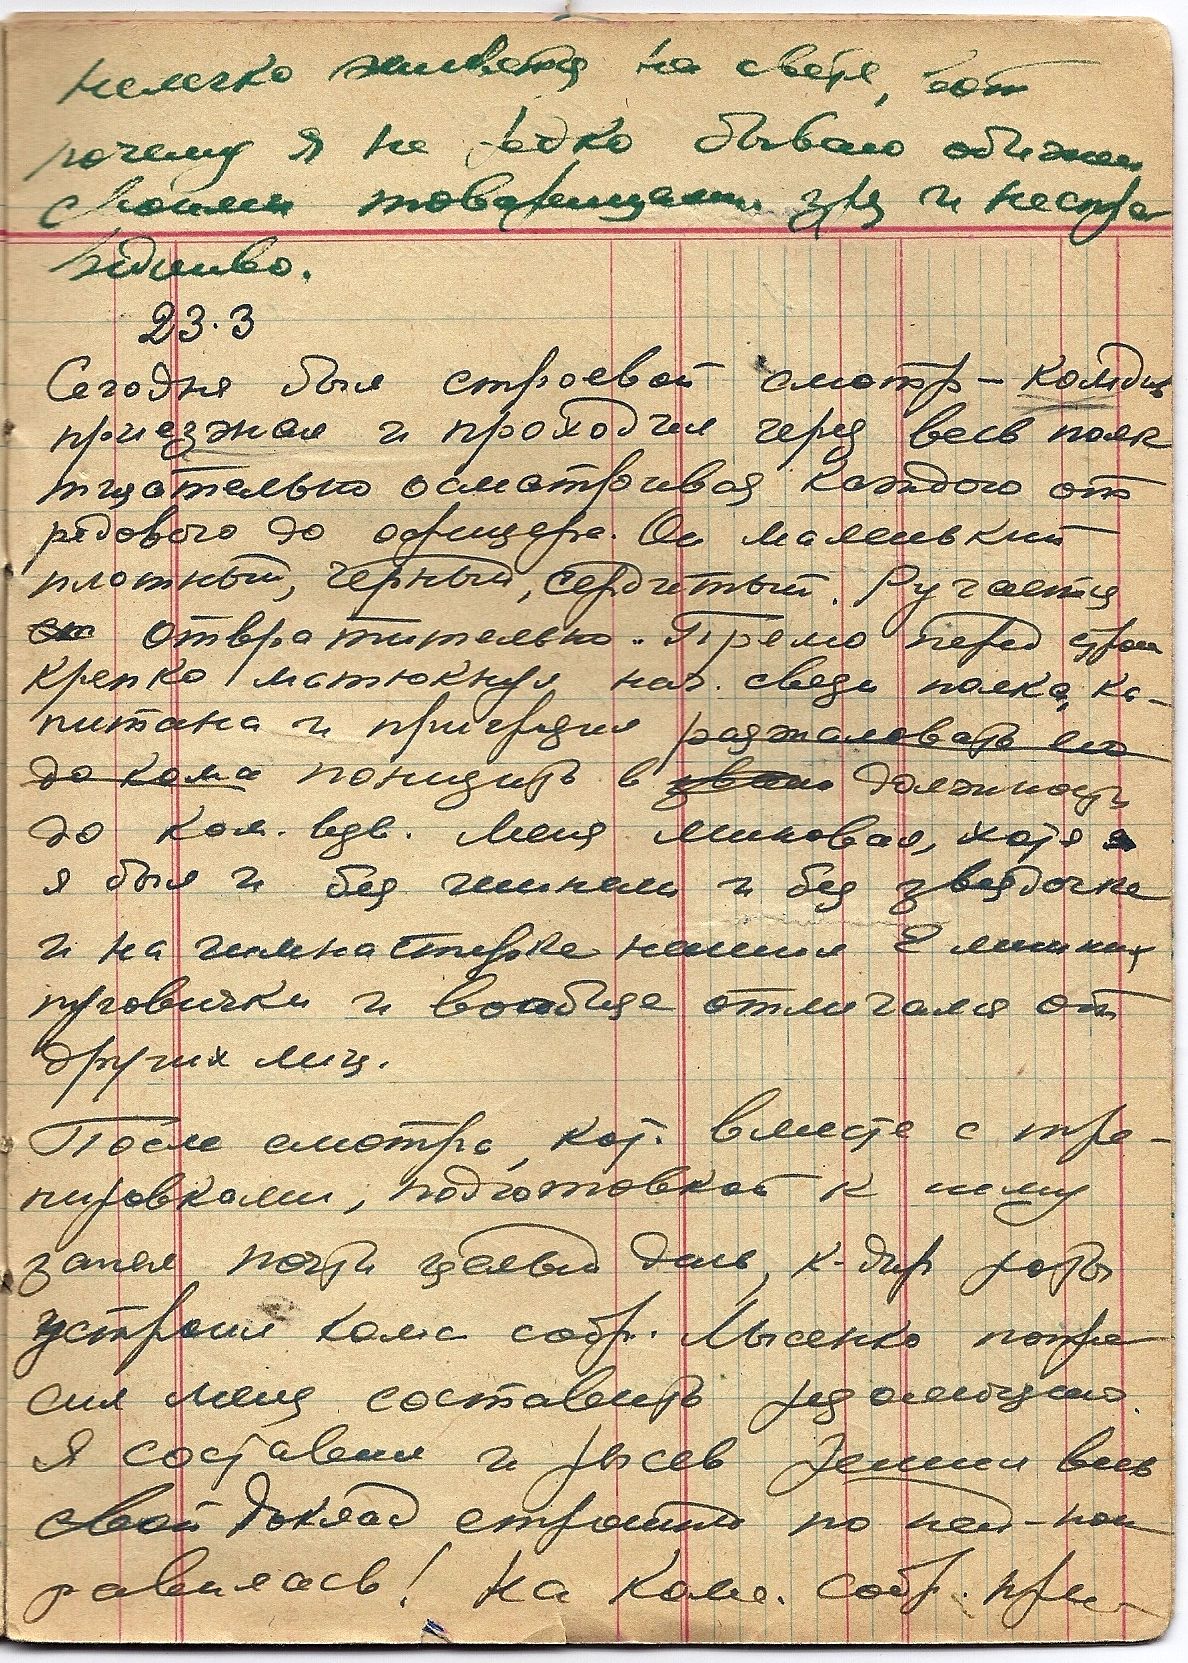 нелегко живется на свете, вот
почему я не редко бываю обижен
своими товарищами зря и неспра
ведливо.
23.3
Сегодня был строевой смотр – комдив
приезжал и проходил через весь полк
тщательно осматривая каждого от
рядового до офицера. Он маленький
плотный, черный, сердитый. Ругается
отвратительно. Прямо перед строем
крепко матюкнул нач. связи полка, ка-
питана и пригрозил разжаловать его
до кома понизить в звании должности
до ком. взв. Меня миновал, хотя
я был и без шинели и без звездочки
и на гимнастерке нашил
пуговички и вообще отличался от
других лиц.
После смотра, кот. вместе с тре-
нировками, подготовкой к нему
занял почти целый день, к-дир роты
устроил комс собр. Лысенко попро
сил меня составить резолюцию.
Я составил и Рысев решил весь
свой доклад строить по ней – пон
равилась! На комс. собр. при-